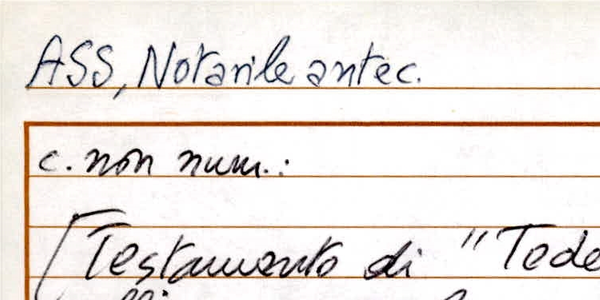 ASS, Notarile antec.
c. non num.:
[Testamento di "Tede